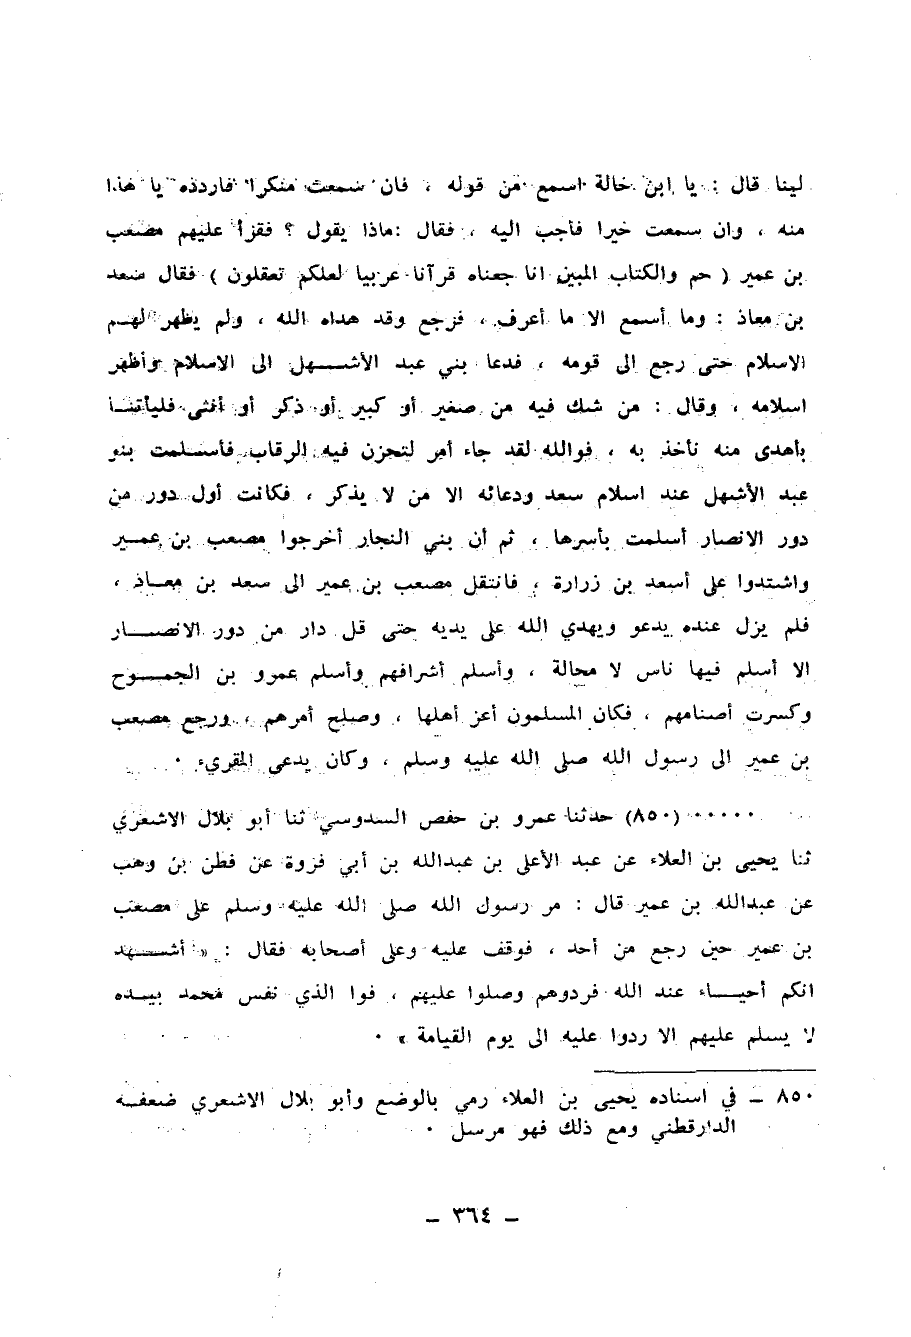 لينا قال : يا ابن خالة اسمع من قوله ، فان سمعت منكرا فاردده يا هذا
منه ، وان سمعت خيرا فأجب اليه ، فقال :ماذا يقول ؟ فقرأ عليهم مصعب
بن عمير ( حم والكتاب المبين انا جعناه قرآنا عربيا لعلكم تعقلون ) فقال سعد
بن معاذ : وما أسمع الا ما أعرف ، فرجع وقد هداه الله ، ولم يظهر لهم
الاسلام حتى رجع الى قومه ، فدعا بني عبد الأشهل الى الاسلام وأظهر
اسلامه ، وقال : من شك فيه من صغير أو كبير أو ذكر أو أنثى فليأتنا
بأهدى منه نأخذ به ، فوالله لقد جاء أمر لتحزن فيه الرقاب فأسلمت بنو
عبد الأشهل عند اسلام سعد ودعائه الا من لا يذكر ، فكانت أول دور من
دور الانصار أسلمت بأسرها ، ثم أن بني النجار أخرجوا مصعب بن عمير
واشتدوا على أسعد بن زرارة ، فانتقل مصعب بن عمير الى سعد بن معاذ ،
فلم يزل عنده يدعو ويهدي الله على يديه حتى قل دار من دور الانصار
الا أسلم فيها ناس لا محالة ، وأسلم أشرافهم وأسلم عمرو بن الجموح
وكسرت أصنامهم ، فكان المسلمون أعز أهلها ، وصلح أمرهم ، ورجع مصعب
بن عمير الى رسول الله صلى الله عليه وسلم ، وكان يدعى المقريء ٠
٠٠٠٠٠ (٨٥٠) حدثنا عمرو بن حفص السدوسي ثنا أبو بلال الاشعري
ثنا يحيى بن العلاء عن عبد الأعلى بن عبدالله بن أبي فروة عن قطن بن وهب
عن عبدالله بن عمير قال : مر رسول الله صلى الله عليه وسلم على مصعب
بن عمير حين رجع من أحد ، فوقف عليه وعلى أصحابه فقال : « أشهد
انكم أحياء عند الله فردوهم وصلوا عليهم ، فوا الذي نفس محمد بيده
لا يسلم عليهم الا ردوا عليه الى يوم القيامة » ٠
٨٥٠ – في اسناده يحيى بن العلاء رمي بالوضع وأبو بلال الاشعري ضعفه
الدارقطني ومع ذلك فهو مرسل ٠
– ٣٦٤ –